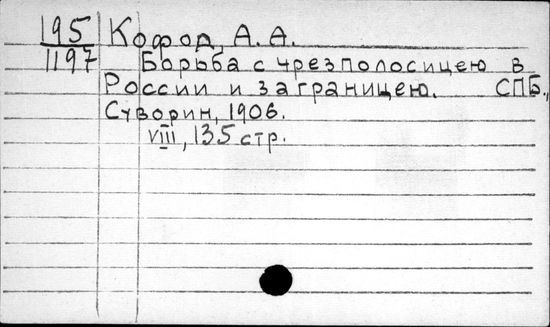 195 Кофод, А. А.
1197 Борьба с чрезполосицею в
России и заграницею. СПБ.,
Суворин, 1906.
VIII, 135 стр.